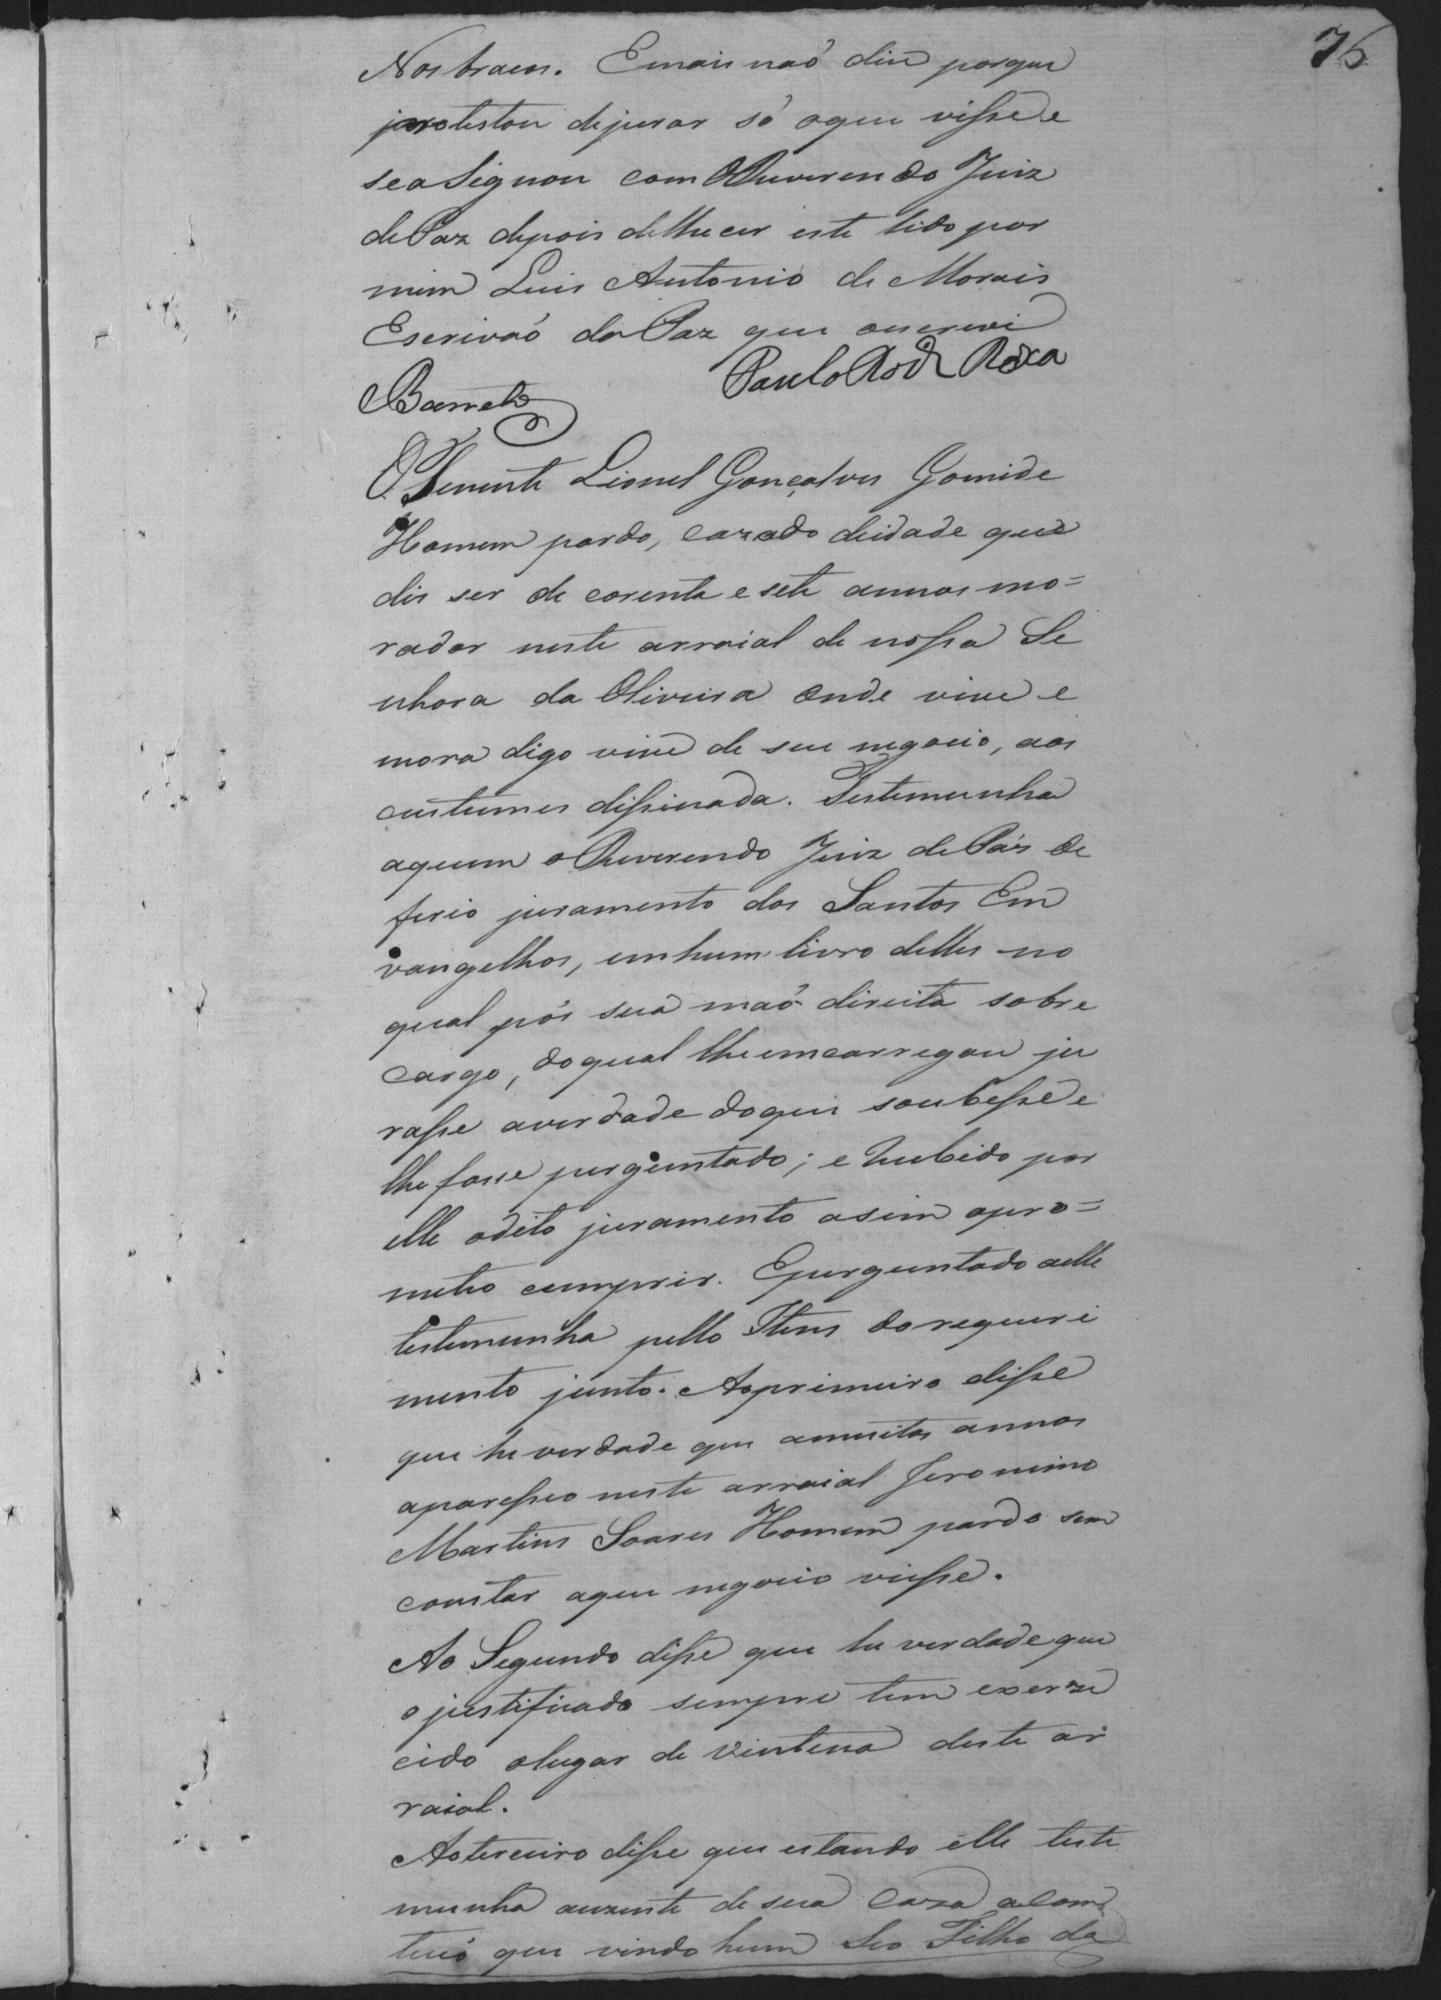 76
Nos braços. Emais naó dise porque
protestou dejurar só oque visse e
seasignou com OReverendo Juiz
dePaz depois delhe ser este lido por
mim Luis Antonio de Morais
Escrivaó da Paz que oescrevi
Paulo Rodz Roza
Barreto
O Tenente Lionel Gonçalves Gomide
Homem pardo, cazado deidade que
dis ser de corenta e sete annos mo=
rador neste arraial de nossa Se
nhora da Oliveira onde vive e
mora digo vive de seu negocio, aos
custumes dissenada. Testemunha
aquem o Reverendo Juiz de Pás de
ferio juramento dos Santos Em
vangelhos, emhum livro delles no
qual pós sua maó direita sobre
cargo, doqual lheemcarregou ju
rasse averdade doque soubesse e
lhe fosse perguntado; e recebido por
elle odito juramento asim opro=
meteo cumprir. Eperguntado aelle
testemunha pello Itens dorequeri
mento junto. Aoprimeiro disse
que he verdade que amuitos annos
aparesseo neste arraial Jeronimo
Martins Soares Homem pardo sem
constar aque negocio viesse.
Ao Segundo disse que he verdade que
ojustificado sempre tem exerze
cido olugar de Vintena deste ar
raial.
Aoterceiro disse que estando elle teste
munha auzente de sua Caza acom
teceó que vindo hum Seo Filho da